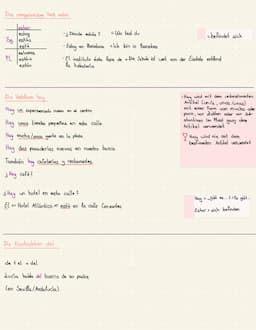 estar
estoy
Sg. estás
está
estamos
Pl. estáis
están
¿Dónde estás? = Wo bist du
Estoy en Barcelona = Ich bin in Barcelona
El instituto está fuera de = Die Schule ist weit von der
= befindet sich
Hay un supermercado nuevo en el centro.
Hay unas tiendas pequeñas en esta calle.
Hay mucha/poca gente en la plaza.
Hay dos panaderías nuevas en nuestro barrio.
También hay cafeterías y restaurantes.
¿Hay
¿Hay un hotel en esta calle?
El Hotel Atlántico está en la calle Cervantes.
Hay wird mit dem unbestimmten
Artikel (un/a, unos/unas)
mit einer Form von mucho oder
poco, vor Zahlen oder vor
Hay wird nie mit dem
bestimmten Artikel verwendet
Hay = gibt es
Estar = sich befinden
Die Kontraktion del
de + el = del
Lucía habla del barrio de su padre
(en Sevilla/Andalucía).